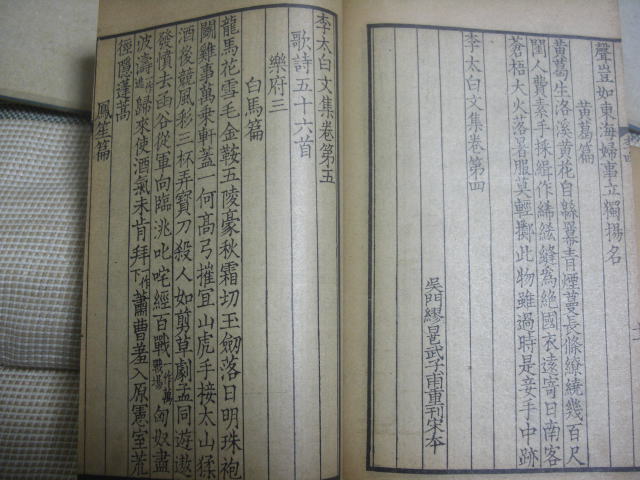 聲豈如東海婦事立獨揚名
黃葛篇
黃葛生洛溪黃花自緜羃青煙蔓長條繚繞幾百尺
閨人費素手採緝作絺綌縫爲絶國衣遠寄日南客
蒼梧大火落暑服莫輕擲此物雖過時是妾手中跡
李太白文集卷第四
吳門繆曰芑武子甫重刊宋本
李太白文集卷第五
歌詩五十六首
樂府三
白馬篇
龍馬花雪毛金鞍五陵豪秋霜切玉劒落日明珠袍
鬭雞事萬乗軒蓋一何高弓摧宜山虎手接太山猱
酒後競風彩三杯弄寳刀殺人如剪草劇孟同遊遨
發憤去函谷從軍向臨洮叱咤經百戰一作萬戰場匈奴盡
波濤歸來使酒氣未肯拜一作下蕭曹羞入原憲室荒
徑隱蓬蒿
鳳笙篇